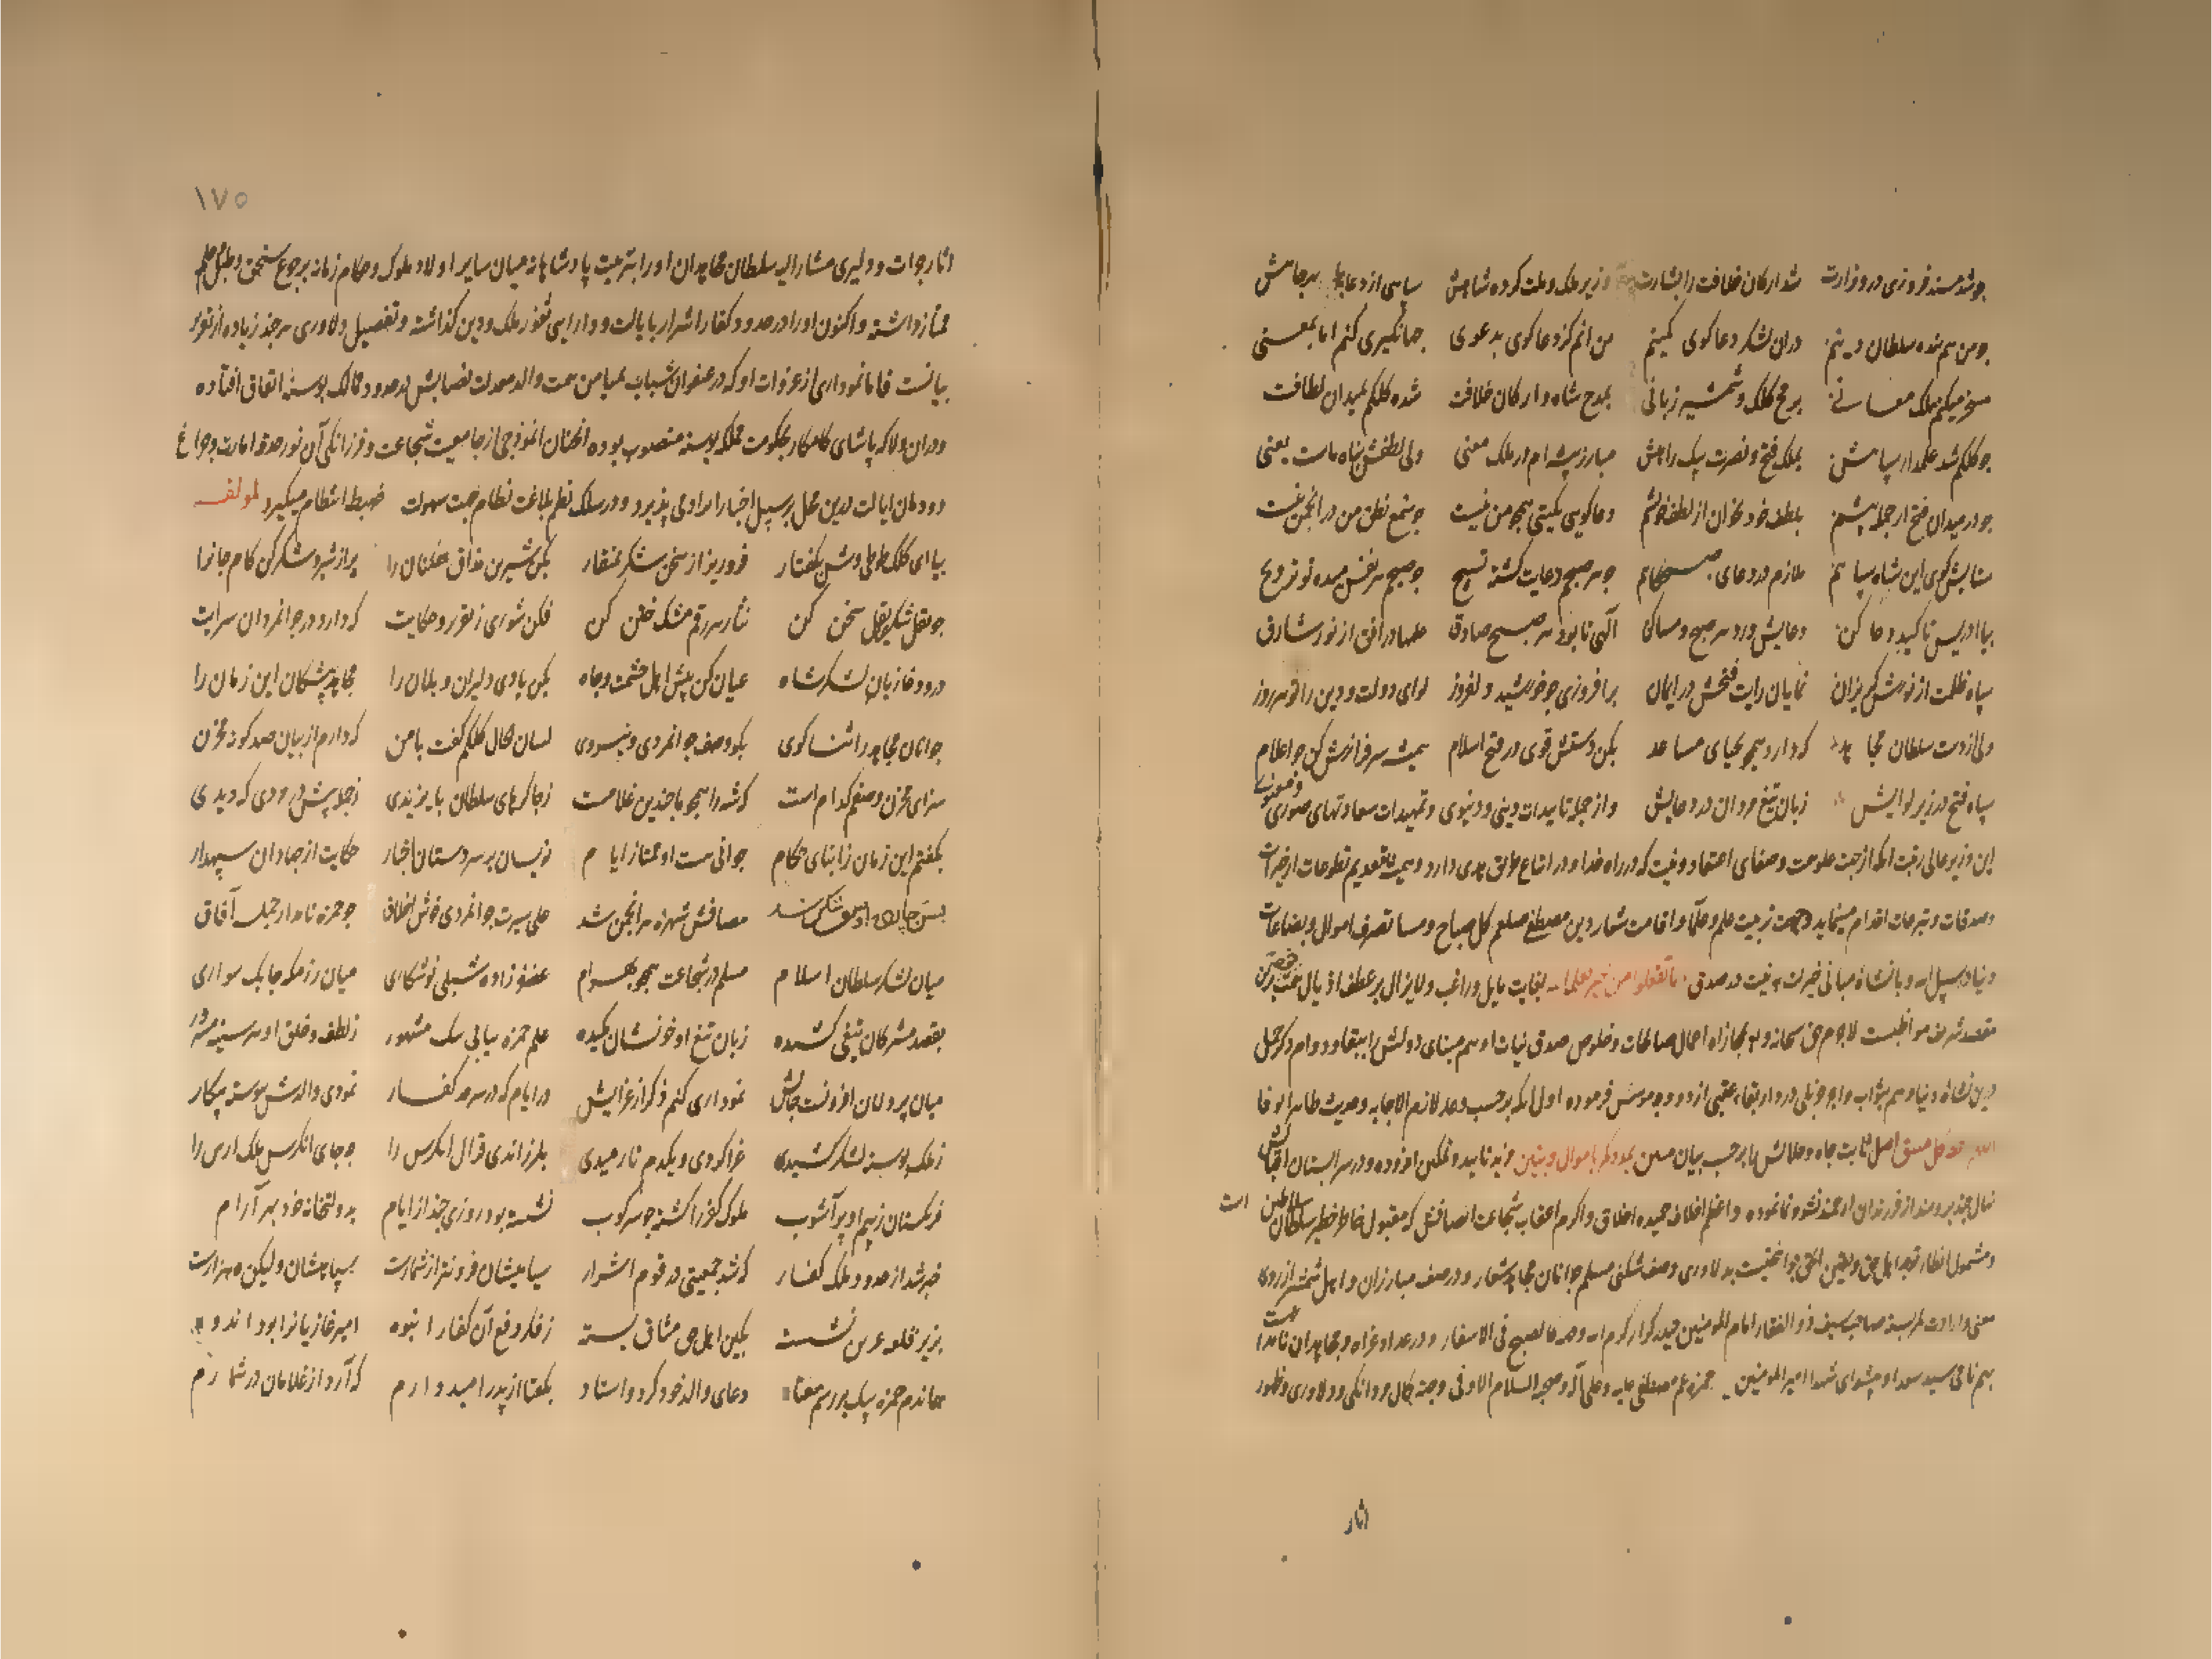 چو شد مسند فروزی در وزارت شد ارکان خلافت را بشارت وزیر ملک و ملت کرده شاهش سپاهی از دعا بهر جاهش
چو من هم بنده سلطان دینم دران لشکر دعاکوی کمینم من انم کز دعاکوی بدعوی جهانکیری کنم اما بمعنی
مسخر میکنم ملک معانی برمح کلک و شمشیر زبانی بمدح شاه و ارکان خلافت شده کلکم بمیدان لطافت
چو کلکم شد علمدار سپاهش بملک فتح و نصرت پیک راهش مبارز پیشه ام در ملک معنی ولی لطفش پناه ماست یعنی
چو در میدان فتح از جمله پیشم بلطف خود بخوان از لطف خویشم دعاکویی بکیتی همچو من نیست چو شمع نطق من در انجمن نیست
ستایش کوی این شاه سپاهم ملازم در دعای صبحکاهم چو هر صبح دعایت کشته تسبیح چو صبحم هر نفس میده تو ترویح
بیا ادریس تاکید دعا کن دعایش ورد هر صبح و مسا کن الهی تا بود هر صبح صادق علمها در افق از نور شارق
سپاه ظلمت از نورش کریزان نمایان رایت فتحش در ایمان برافروزی چو خورشید دلفروز لوای دولت و دین را تو هر روز
ولی از دست سلطان مجاهد که دارد همچو یحیای مساعد بکن دستش قوی در فتح اسلام همیشه سرفرازش کن چو اعلام
سپاه فتح در زیر لوایش زبان تیغ مردان در دعایش و از جمله تاییدات دینی و دنیوی و تمهیدات سعادتهای صوری و معنوی
این وزیر عالی رتبت انکه از جهت علو همت و صفای اعتقاد و نیت که در راه خدا و در اتباع طرایق هدی دارد و همیشه بتقدیم تطوعات از خیرات
و صدقات و تبرعات اقدام مینماید و بجهت تربیت علم و علما و اقامت شعار دین مصطفی صلعم کل صباح و مسا تصرف اموال و بضاعات
دنیا در سبیل الله و بانشاء مبانی خیرات و نیت در صدق ما تفعلوا من خیر یعلمه الله بغایت مایل و راغب و لایزال بر عطف اذیال
مقصد شریف مواظبت لاجرم حق سبحانه و تع بمجازاه اعمال صالحات و خلوص صدق نیات او هم مبنای دولتش را ببقا و دوام ذکر جمیل
درین نشاه دنیا و هم بثواب و اجر جزیل در دار بقاء عقبی از دو وجه موسس فرموده اول انکه بر حسب وعد لازم الاجابه و حدیث ظاهر الوفا
اصل ثابت جاه و جلالش را بر حسب بیان مبین یمددکم باموال و بنین مزید تایید و تمکین افزوده و در سرابستان اقبالش
نهال چند برومند از فرزندان ارجمند نشو و نما نموده و اعظم اخلاف حمیده اخلاق و اکرم اعقاب شجاعت اتصافش که مقبول خاطر خطیر سلاطین است
و مشمول انظار توجه اهل حق و یقین الحق جوانبختیست بدلاوری و صف شکنی مسلم جوانان مجاهد شعار و در صف مبارزان و اهل شمشیر از روی
معنی و ارادت کمربسته صاحب سیف ذو الفقار امام المومنین حیدر کرار کرم الله وجهه کالصبح فی الاسفار و در عداد غزاه و مجاهدان نامدار
بهم نامی سید سعدا و پیشوای شهدا امیر المومنین حمزه عم مصطفی علیه و علی آله و صحبه السلام الاوفی و بجهت کمال مردانکی و دلاوری و ظهور
اثار
۱۷۵
اثار جرات و دلیری مشار الیه سلطان مجاهدان او را بتربیت پادشاهانه میان سایر اولاد ملوک و حکام زمانه برجوع سنجق و طبل و علم
ممتاز داشته و اکنون او را در صدد و کفار اشرار بایالت و دارایی ثغور ملک و دین کذاشته و تفصیل دلاوری هر چند زیاده از تقریر
بیانست فاما نموداری از غزوات او که در عنفوان شباب بمیامن همت والد معدلت نصابش در حدود ممالک بوسنه اتفاق افتاده
و دران ولا که پاشای کامکار بحکومت مملکه بوسنه منصوب بوده انچنان انموذجی از جامعیت شجاعت و فرزانکی آن نور حدقه امارت و چراغ
دودمان ایالت بدین محل بر سبیل اخبار ایراد می پذیرد و در سلک نظم بلاغت نظام جهت سهولت ضبط انتظام میکیرد لمولفه
بیا ای کلک طوطی وش بکفتار فرو ریز از سخن شکر بمنقار بکن شیرین مذاق همکنان را پر از شیر و شکر کن کام جانرا
چو نقل شکرین نقل سخن کن نثار هر رقم مشک ختن کن فکن شوری ز تقریر حکایت که دارد در جوانمردان سرایت
درود غازیان لشکر شاه عیان کن پیش اهل حشمت و جاه بکن یادی دلیران و یلان را مجاهد پیشکان این زمان را
جوانان مجاهد را ثنا کوی بکو وصف جوانمردی و نیروی لسان حال کلکم کفت با من که دارم از بیان صد کونه مخزن
سزای مخزن وصفم کدام است که شه را همچو ما چندین غلامست ز چاکرهای سلطان بایزیدی ز جمله پیش در مردی که دیدی
بکفتم این زمان ز ابنای حکام جوانی هست او ممتاز ایام نویسان بر سر دستان اخبار حکایت از جهاد ان سپهدار
مصافش شهره هر انجمن شد علی سیرت جوانمردی خوش اخلاق چو حمزه نامدار جمله آفاق
میان لشکر سلطان اسلام مسلم در شجاعت همچو بهرام غضنفر زاده شبلی نو شکاری میان رزمکه چابک سواری
بقصد مشرکان تیغی کشیده زبان تیغ او خونشان مکیده علم حمزه بیابی بک مشهور ز لطف و خلق او هر سینه مسرور
میان پر دلان افزونست جایش نموداری کنم ذکر از غزایش در ایام که در سرحد کفار نمودی والدش پیوسته پیکار
ز ملک بوسنه لشکر کشیدی غزا کردی و یکدم نارمیدی بلرزاندی قرال انکرس را چو جای انکرس ملک ارس را
فرنکستان ز بیم او پر آشوب ملوک کفر را کشته چو سرکوب نشسته بود روزی چند از ایام بدولتخانه خود بهر آرام
خبر شد از حدود ملک کفار که شد جمعیتی در قوم اشرار سپاهیشان فزونتر از شمارت سپاهشان ولیکن ده هزارست
بزیر قلعه نشسته بکین اهل حق مشتاق بسته ز فکر دفع آن کفار انبوه امیر غازیانرا بود اندوه
هماندم حمزه بیک دعای والد خود کرد و استاد بکفتا از پدر امیدوارم که آرد از غلامان در شمارم